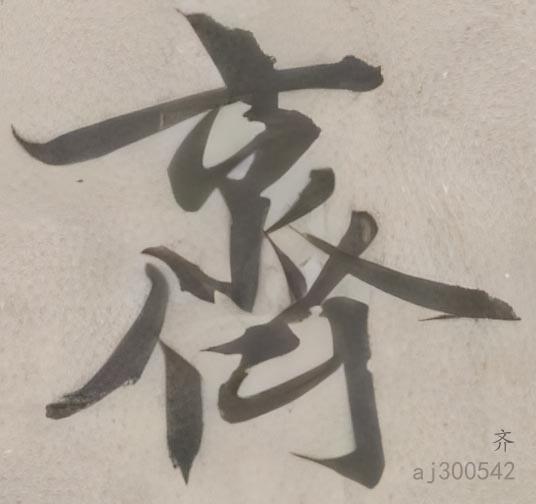 齊
齐
aj300542